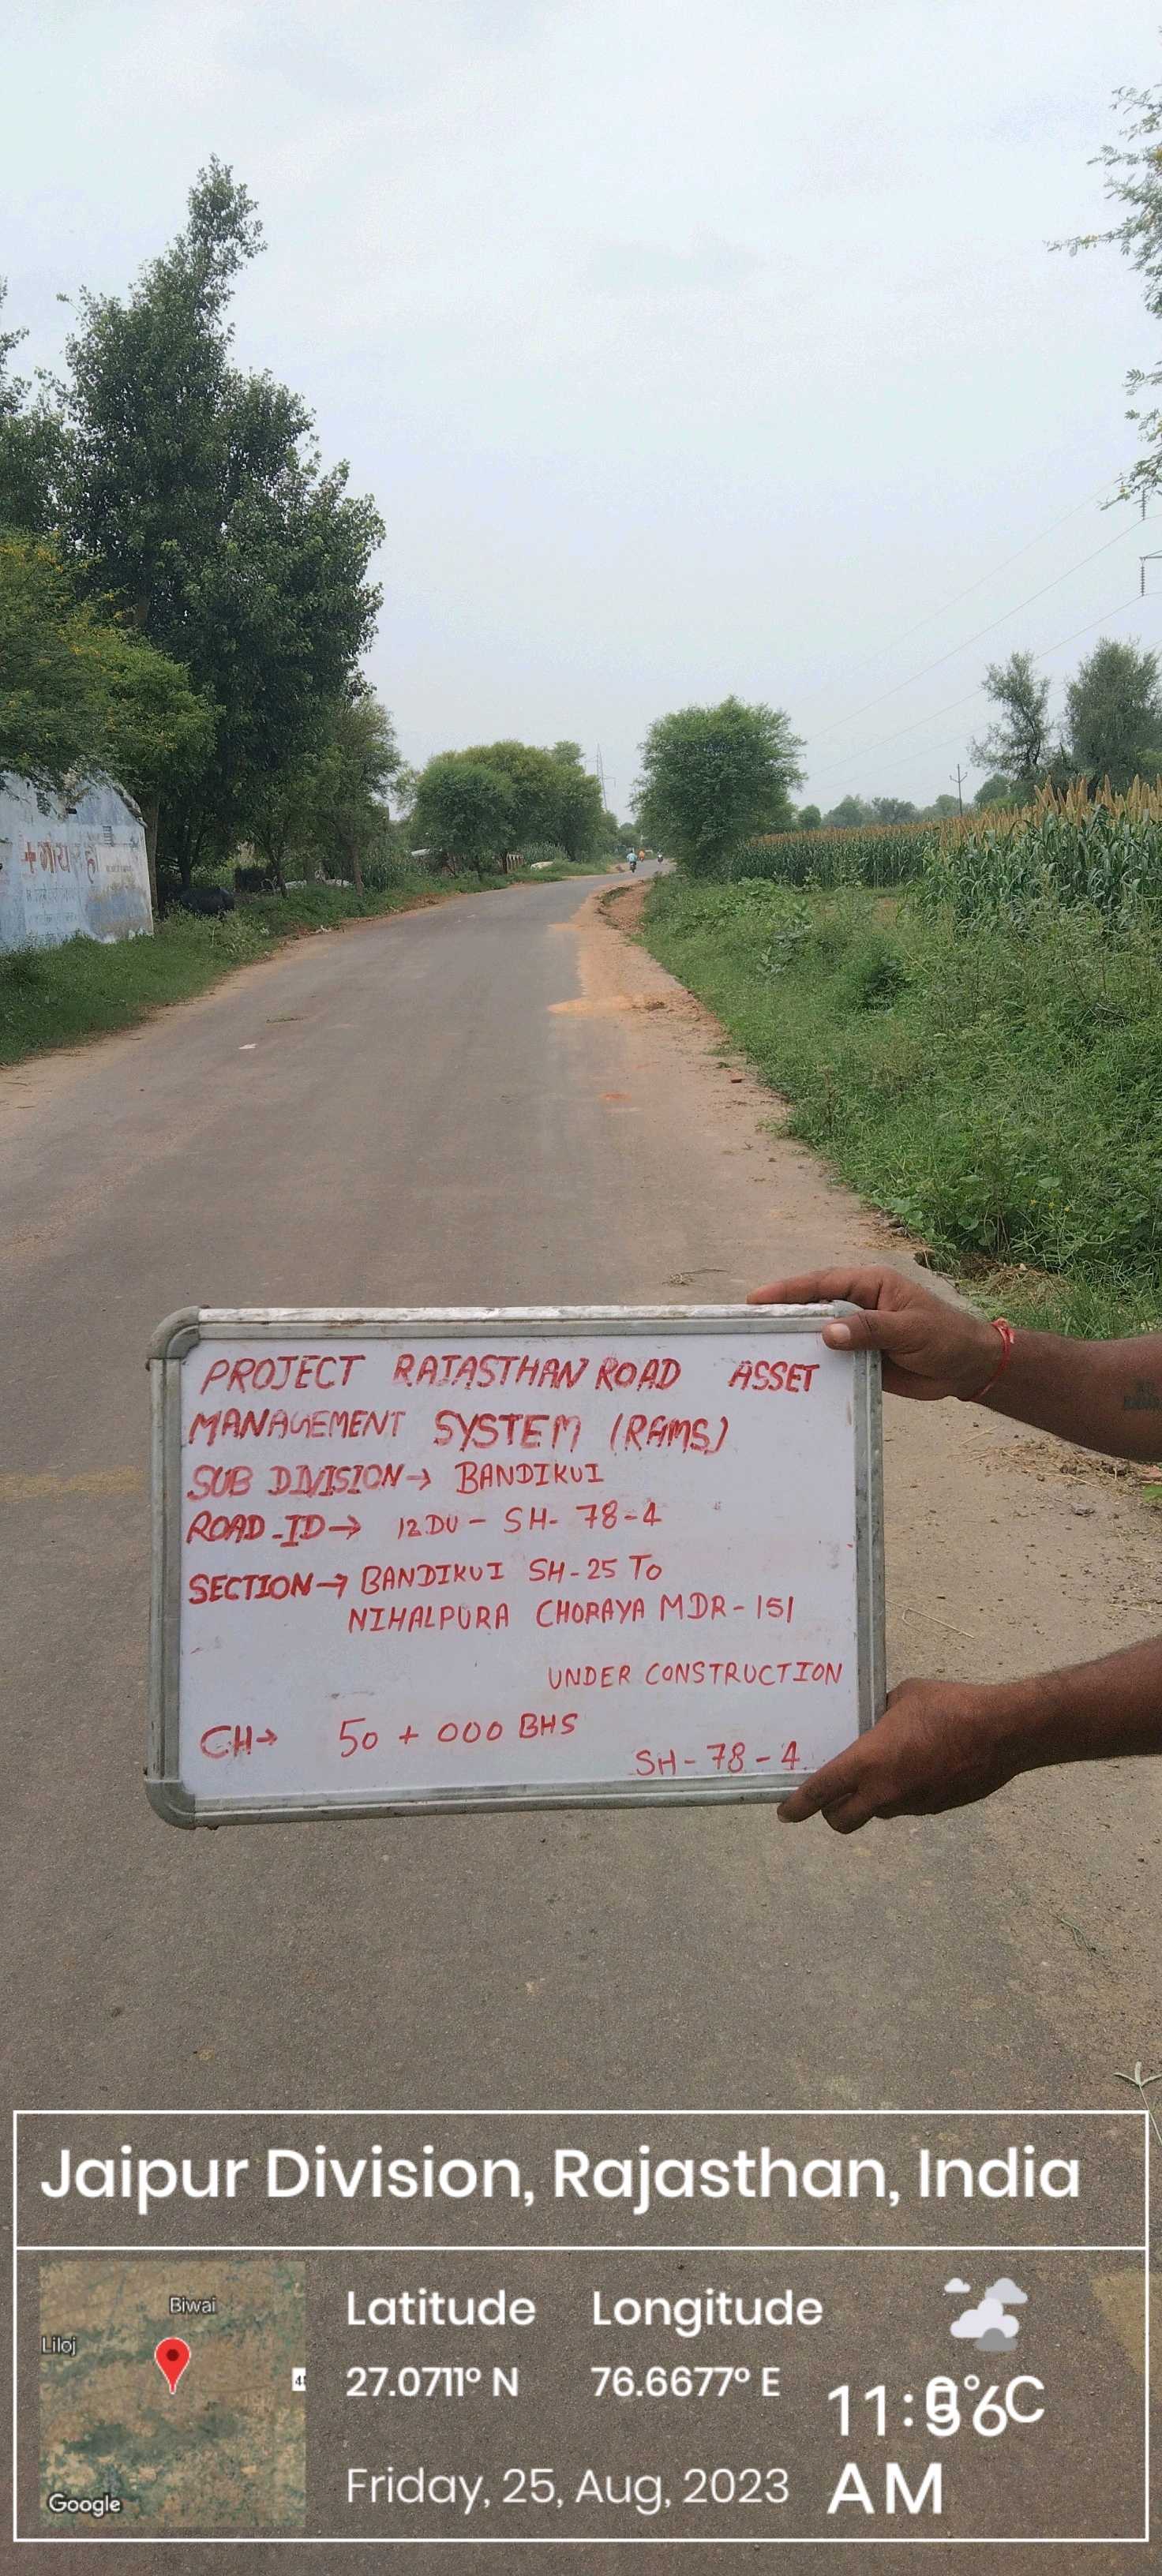 PROJECT RAJASTHAN ROAD ASSET
MANAGEMENT SYSTEM (RAMS)
SUB DIVISION→ BANDIKUI
ROAD-ID→ 12DU - SH- 78-4
SECTION→ BANDIKUI SH-25 TO
NIHALPURA CHORAYA MDR-151
UNDER CONSTRUCTION
CH→ 50 + 000 BHS
SH-78-4
Jaipur Division, Rajasthan, India
Biwai
Liloj
Google
Latitude Longitude
27.0711° N 76.6677° E
Friday, 25, Aug, 2023
AM